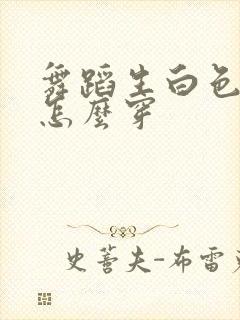 舞蹈生白色
怎麼穿
史蒈夫-布雷